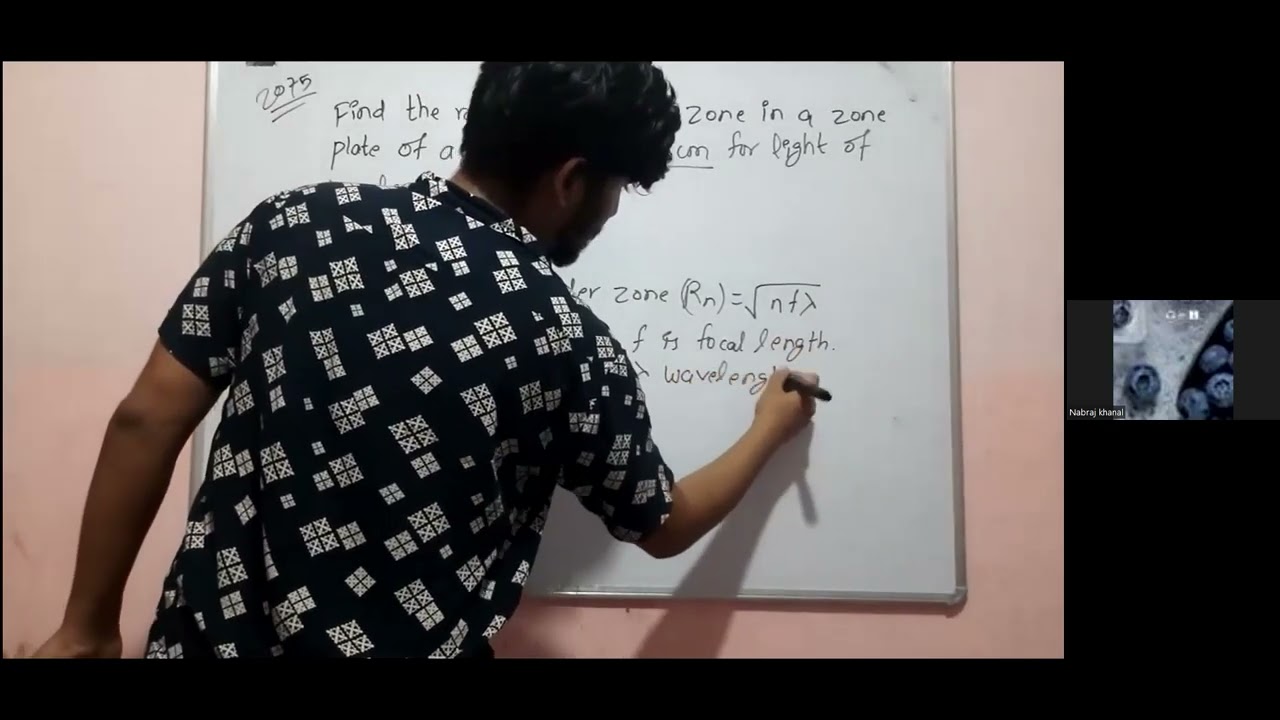 2075
Find the zone in a zone
plate of a cm for light of
zone (Rn) = √nfλ
f is focal length.
λ wavelengt
Nabraj khanal